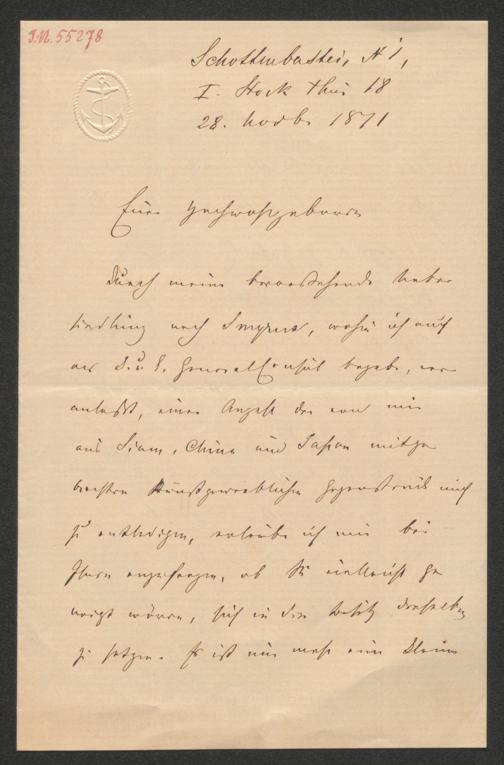 I.N. 55278
Schottenbastei, N 1,
I. Stock Thür 18
28. Novbr 1871
Euer Hochwohlgeboren
Durch meine bevorstehende Ueber
siedlung nach Smyrna, wohin ich mich
als K. u. k. GeneralConsul begebe, ver
anlaßt, einer Anzahl der von mir
aus Siam, China und Japan mitge
brachten kunstgewerblichen Gegenstände mich
zu entledigen, erlaube ich mir bei
Ihnen anzufragen, ob Sie vielleicht ge
neigt wären, sich in den Besitz derselben
zu setzen. Es ist nur mehr eine kleine